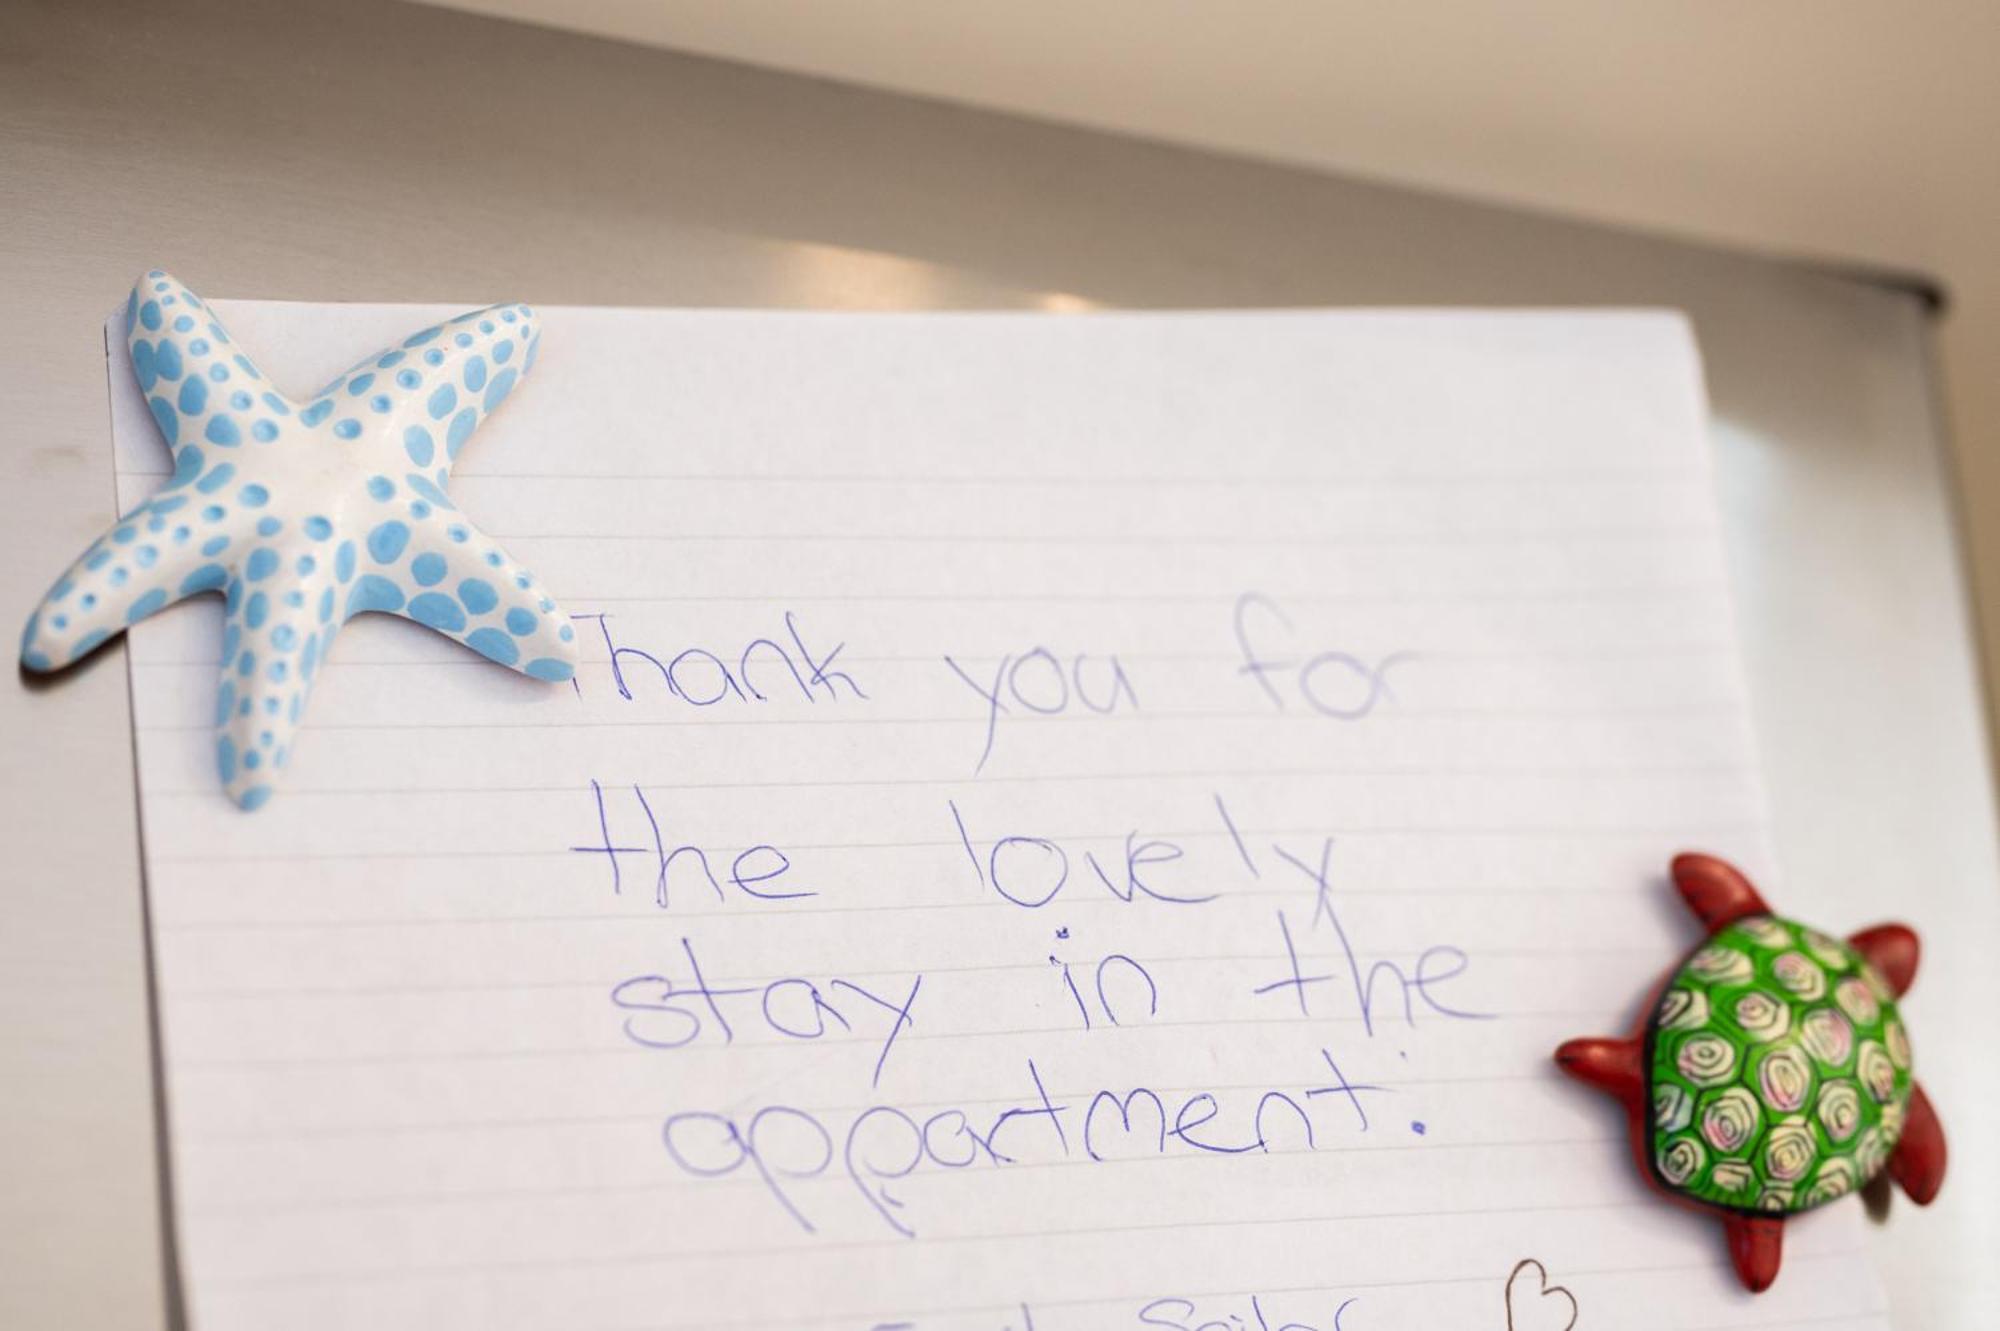 Thank you for
the lovely
stay in the
appartment.